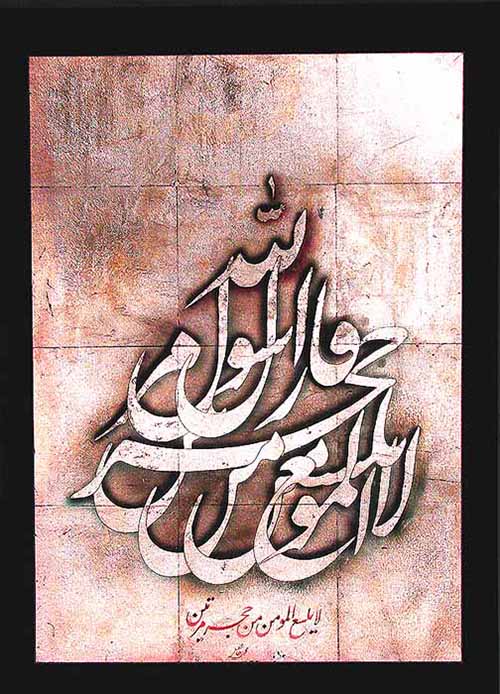 قال رسول الله
لا يلسع المومن من حجر مرتين
لا يلسع المومن من حجر مرتين